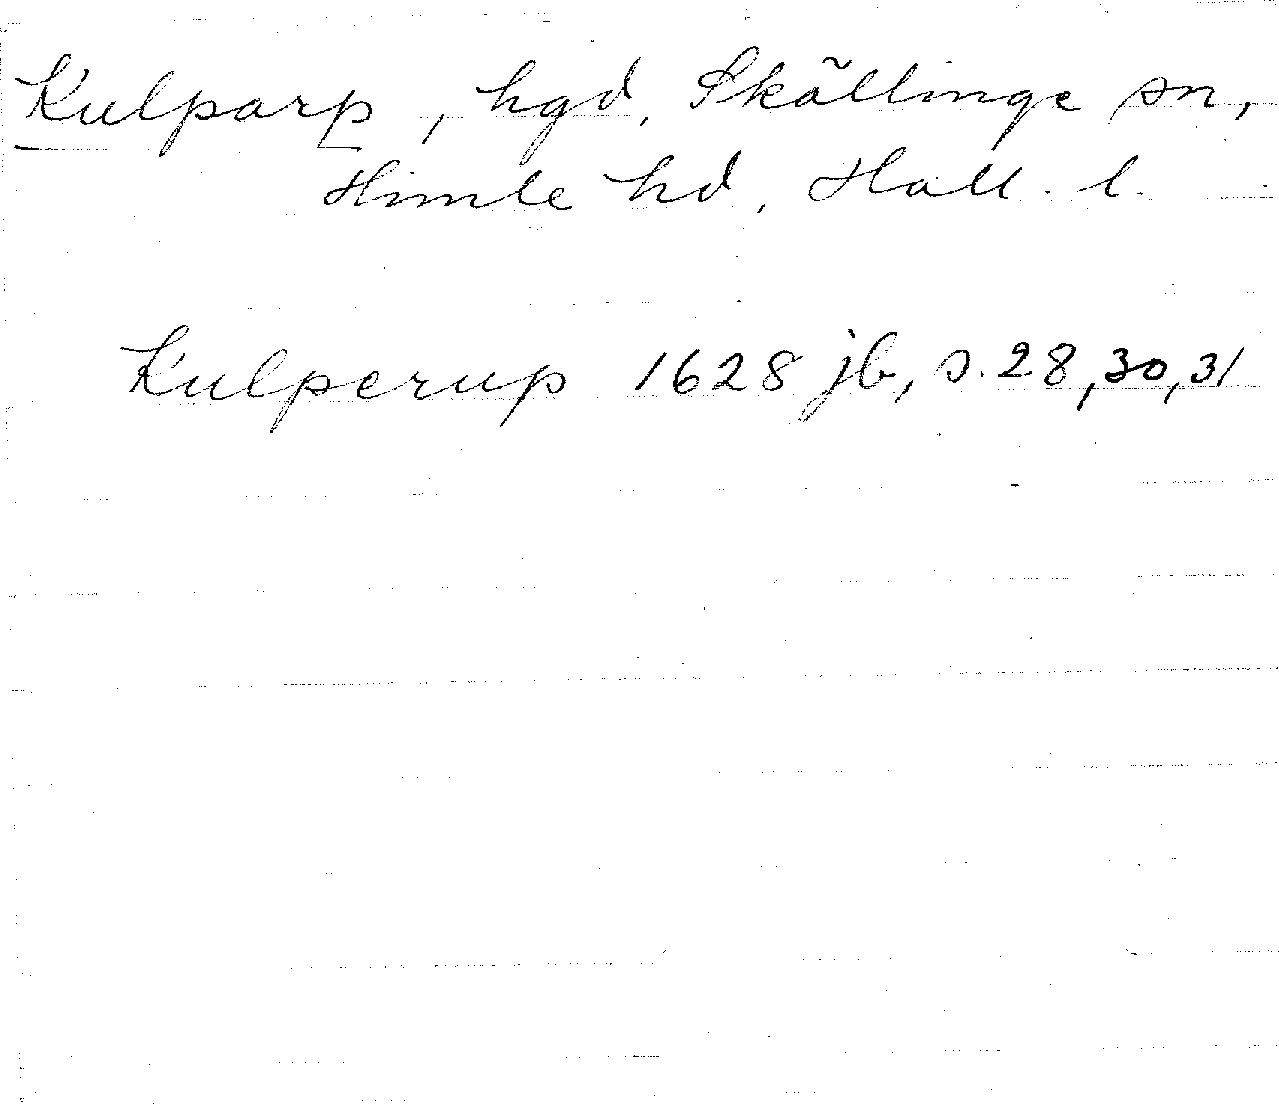 Kulparp, hgd, Skällinge sn,
Himle hd, Hall. l.
Kulperup 1628 jb, s. 28, 30, 31